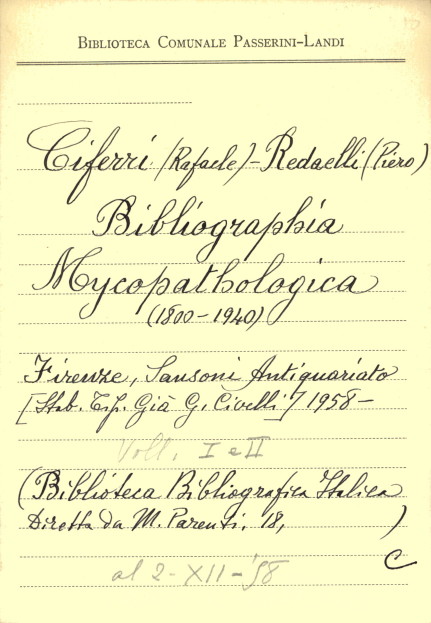 BIBLIOTECA COMUNALE PASSERINI-LANDI
Ciferri (Rafaele) - Redaelli (Piero)
Bibliographia
Mycopathologica
(1800-1940)
Firenze, Sansoni Antiquariato
[Stab. Tip. Già G. Civelli] 1958-
Voll. I e II
(Biblioteca Bibliografica Italica
Diretta da M. Parenti. 18, )
C
al 2-XII-'58